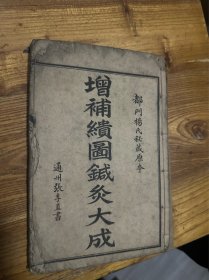 都門楊氏秘藏原本
增補繢圖鍼灸大成
通州張李直書